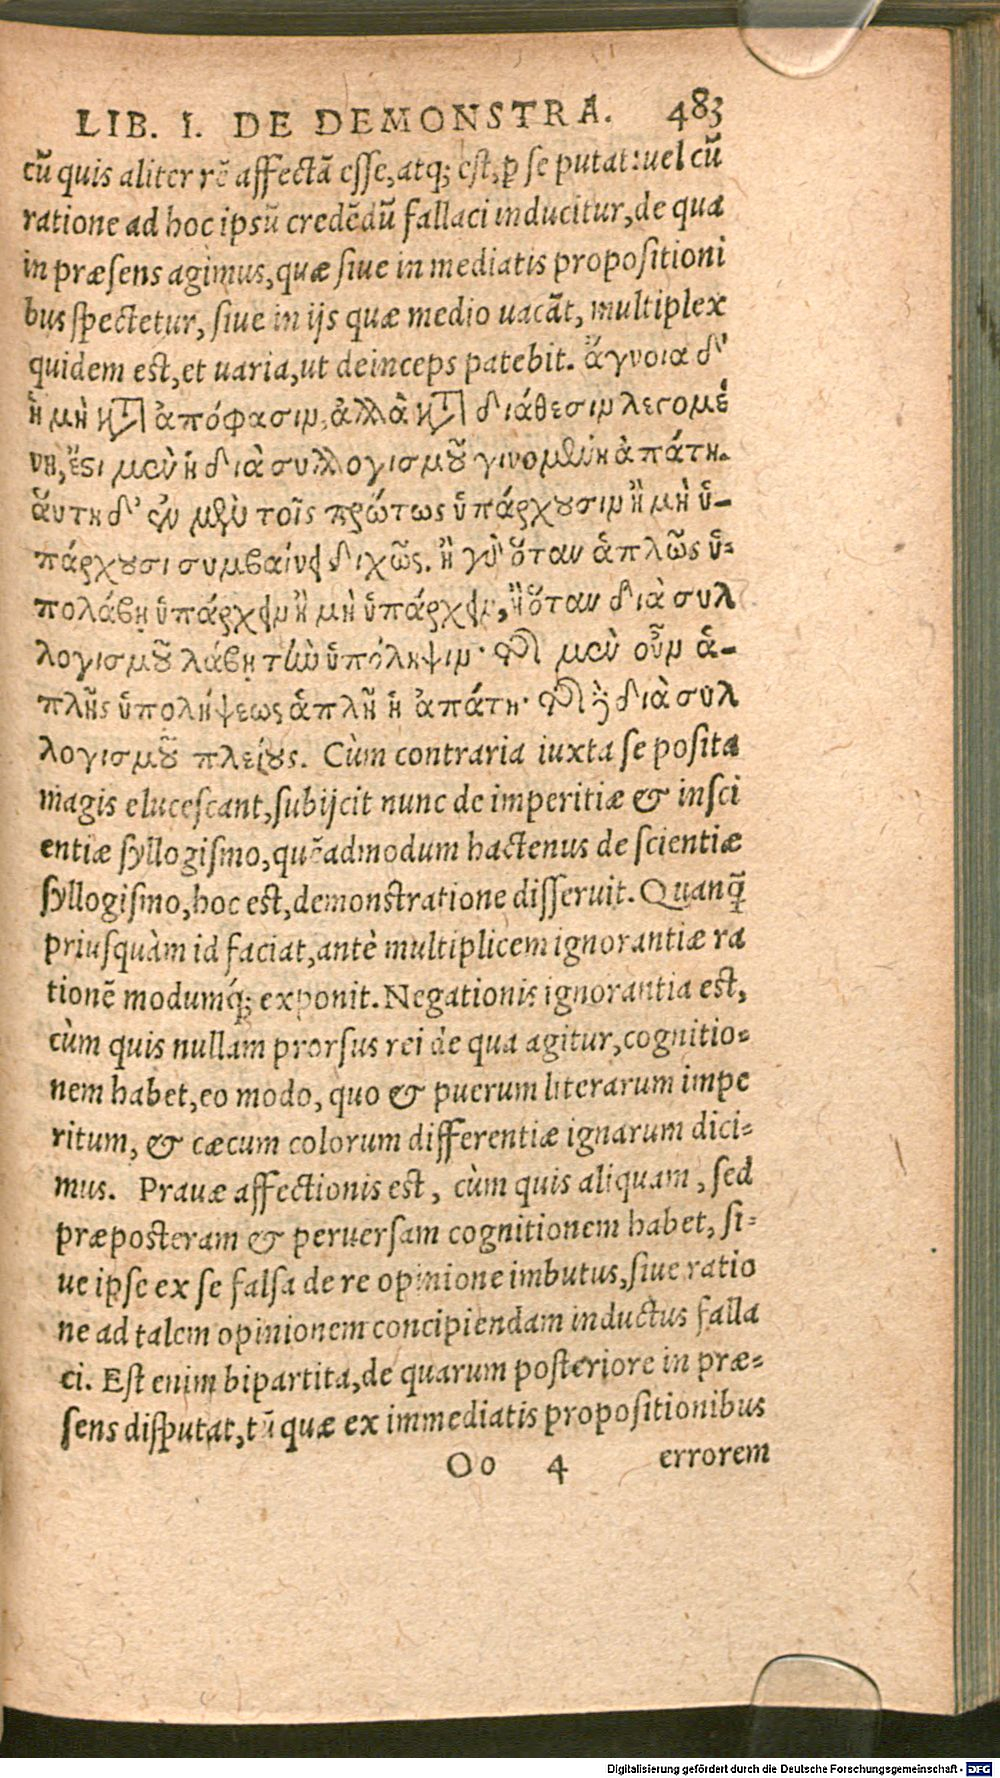 LIB. I. DE DEMONSTRA. 483
cū quis aliter rē affectā esse, atq; est, ꝑ se putat: uel cū
ratione ad hoc ipsū credēdū fallaci inducitur, de qua
in præsens agimus, quæ siue in mediatis propositioni
bus spectetur, siue in ijs quæ medio uacāt, multiplex
quidem est, et uaria, ut deinceps patebit. ἄγνοια δ'
ἡ μὴ κατ' ἀπόφασιν, ἀλλὰ κατὰ διάθεσιν λεγομέ
νη, ἔστι μὲν ἡ διὰ συλλογισμοῦ γινομένη ἀπάτη.
αὕτη δ' ἐν μὲν τοῖς πρώτως ὑπάρχουσιν ἢ μὴ ὑ-
πάρχουσι συμβαίνει διχῶς. ἢ γὰρ ὅταν ἁπλῶς ὑ-
πολάβῃ ὑπάρχειν ἢ μὴ ὑπάρχειν, ἢ ὅταν διὰ συλ
λογισμοῦ λάβῃ τὴν ὑπόληψιν. τῆς μὲν οὖν ἁ-
πλῆς ὑπολήψεως ἁπλῆ ἡ ἀπάτη. τῆς δὲ διὰ συλ
λογισμοῦ πλείους. Cùm contraria iuxta se posita
magis elucescant, subijcit nunc de imperitiæ & insci
entiæ syllogismo, quēadmodum hactenus de scientiæ
syllogismo, hoc est, demonstratione disseruit. Quanq̃
priusquàm id faciat, antè multiplicem ignorantiæ ra
tionē modumq́; exponit. Negationis ignorantia est,
cùm quis nullam prorsus rei de qua agitur, cognitio-
nem habet, eo modo, quo & puerum literarum impe
ritum, & cæcum colorum differentiæ ignarum dici-
mus. Prauæ affectionis est, cùm quis aliquam, sed
præposteram & peruersam cognitionem habet, si-
ue ipse ex se falsa de re opinione imbutus, siue ratio
ne ad talem opinionem concipiendam inductus falla
ci. Est enim bipartita, de quarum posteriore in præ-
sens disputat, tū quæ ex immediatis propositionibus
Oo 4 errorem
Digitalisierung gefördert durch die Deutsche Forschungsgemeinschaft - DFG